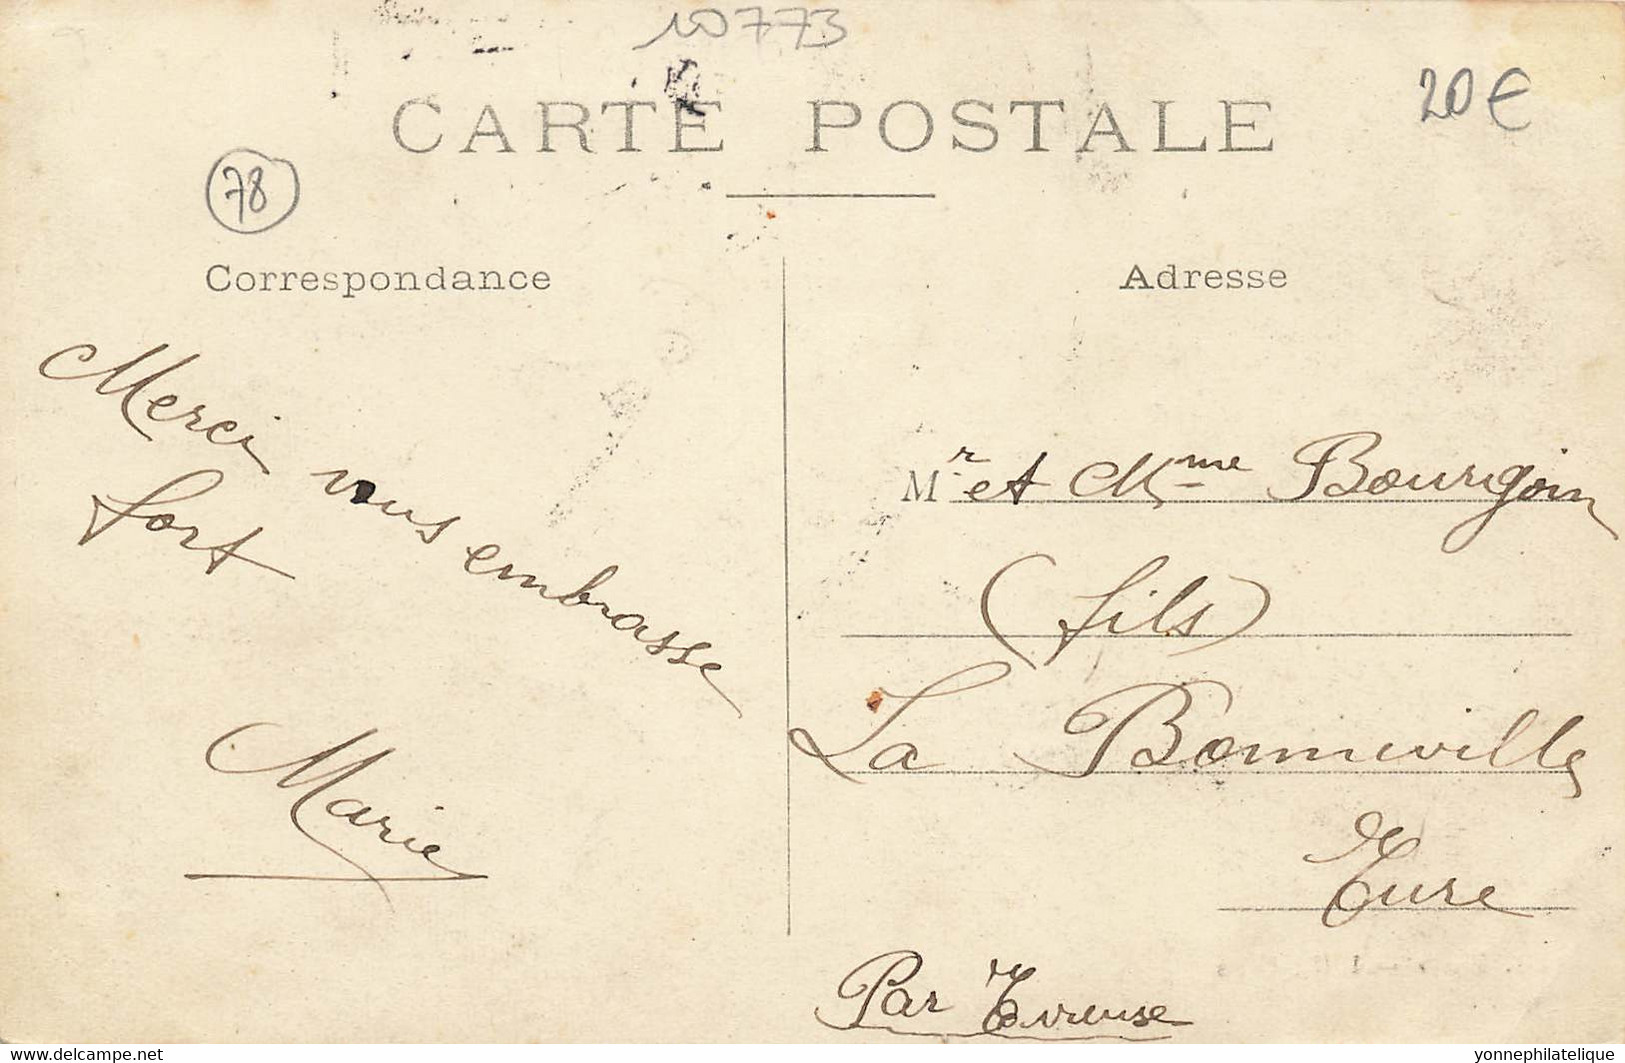 10773
CARTE POSTALE
20€
78
Correspondance
Adresse
Merci vous embrasse
fort
Marie
Mr et Mme Bourgoin
(fils)
La Bonneville
Eure
Par Evreuse
https://www.delcampe.net
yonnephilatelique